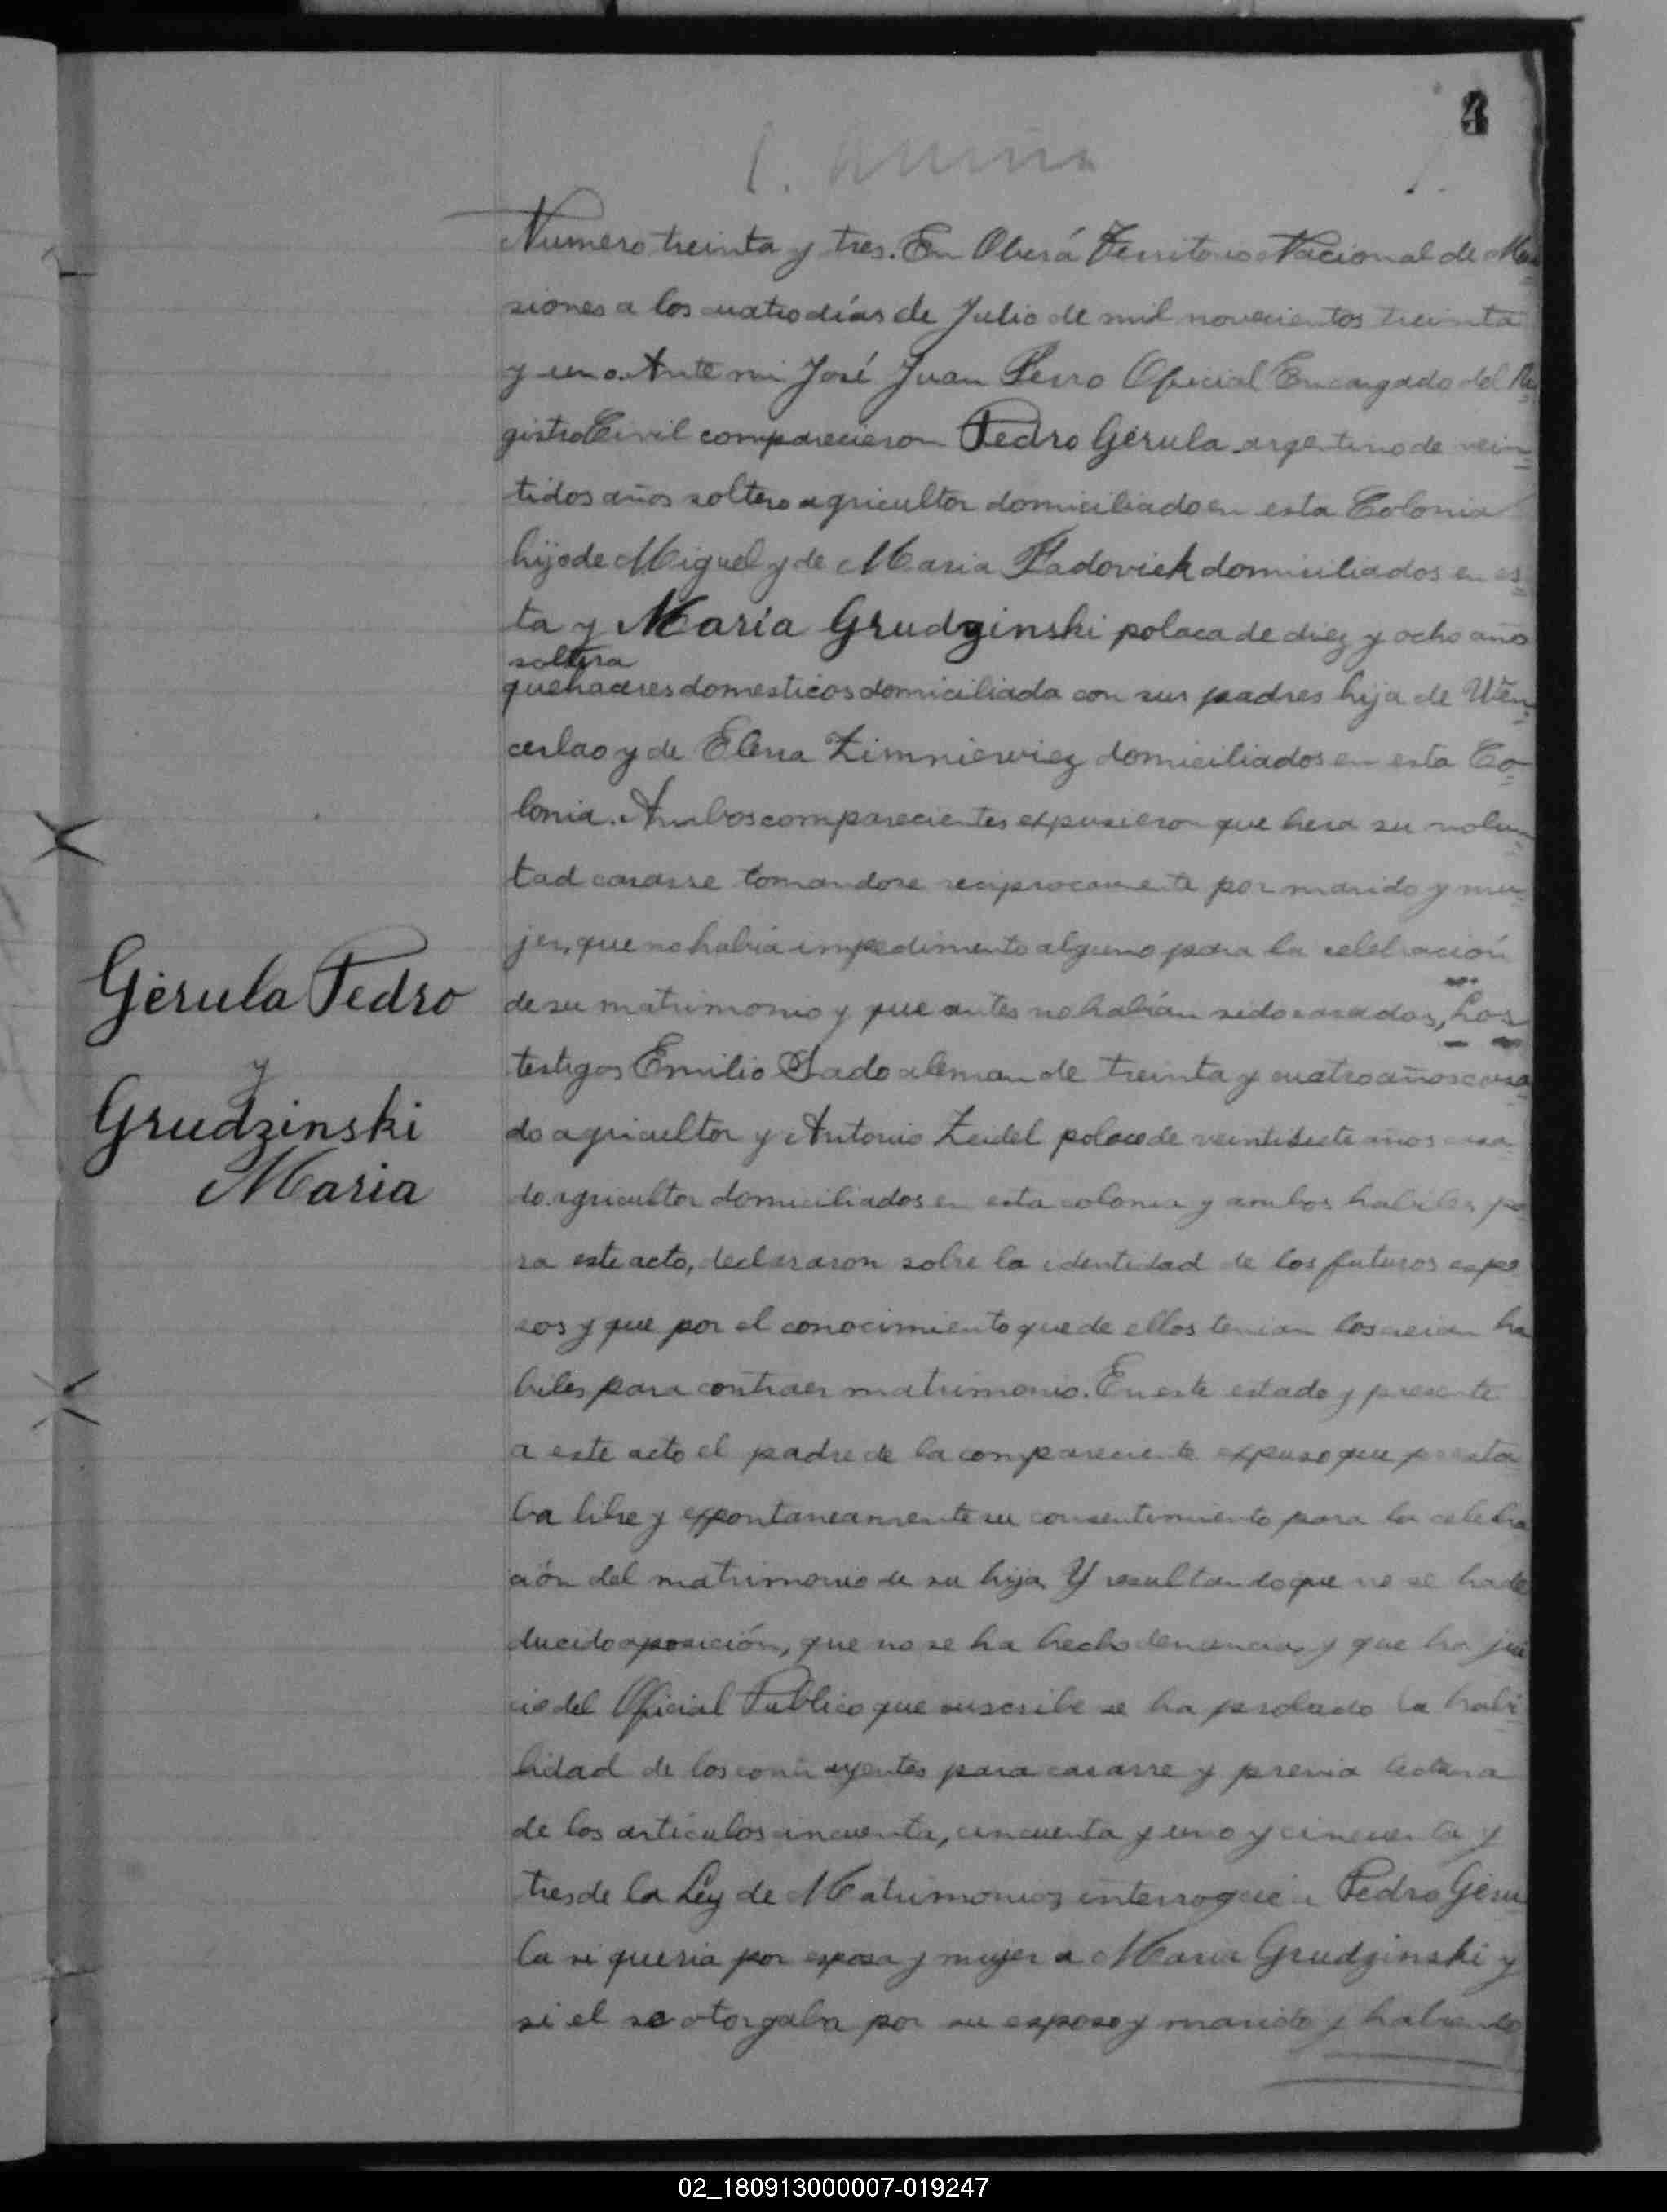 4
Numero treinta y tres. En Oberá Territorio Nacional de Mi
siones a los cuatro días de Julio de mil novecientos treinta
y uno. Ante mi José Juan Perro Oficial Encargado del Re
gistro Civil comparecieron Pedro Gerula argentino de vein
tidos años soltero agricultor domiciliado en esta Colonia
hijo de Miguel y de Maria Fadoviek domiciliados en es
ta y María Grudzinski polaca de diez y ocho años
soltera
quehaceres domesticos domiciliada con sus padres hija de Wen
ceslao y de Elena Zimniewiez domiciliados en esta Co
lonia. Ambos comparecientes expusieron que hera su volun
tad casarse tomandose reciprocamente por marido y mu
jer, que no había impedimento alguno para la celebración
de su matrimonio y que antes no habían sido casados, Los
testigos Emilio Sado aleman de treinta y cuatro años casa
do agricultor y Antonio Zeidel polaco de veintisiete años casa
do agricultor domiciliados en esta colonia y ambos habiles pa
ra este acto, declararon sobre la identidad de los futuros espo
sos y que por el conocimiento que de ellos tenian los creian ha
biles para contraer matrimonio. En este estado y presente
a este acto el padre de la compareciente expuso que presta
ba libre y expontaneamente su consentimiento para la celebra
ción del matrimonio de su hija Y resultando que no se ha de
ducido oposición, que no se ha hecho denuncia y que ha jui
cio del Oficial Publico que suscribe se ha probado la habi
lidad de los contrayentes para casarse y previa lectura
de los artículos cincuenta, cincuenta y uno y cincuenta y
tres de la Ley de Matrimonios interrogué a Pedro Geru
la si queria por esposa y mujer a Maria Grudzinski y
si el se otorgaba por su esposo y marido y habiendo
Gerula Pedro
y
Grudzinski
Maria
02_180913000007-019247